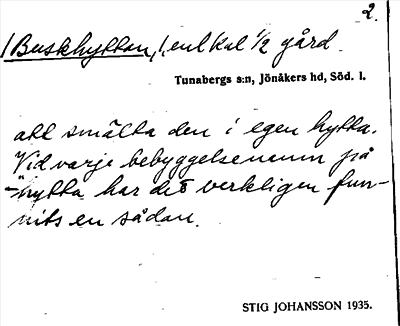 2.
/Buskhyttan,/, enl kal 1/2 gård.
Tunabergs s:n, Jönåkers hd, Söd. l.
att smälta den i egen hytta.
Vid varje bebyggelsenamn på
-hytta har det verkligen fun-
nits en sådan.
STIG JOHANSSON 1935.